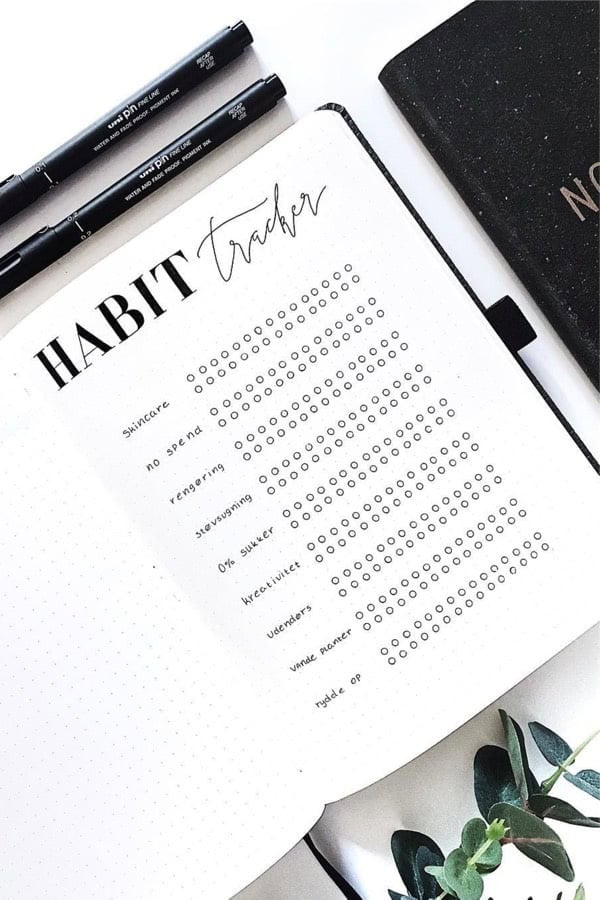 uni pin FINE LINE
WATER AND FADE PROOF, PIGMENT INK
RECAP
AFTER
USE
0.1
uni pin FINE LINE
WATER AND FADE PROOF, PIGMENT INK
RECAP
AFTER
USE
0.2
0.2
NO
HABIT tracker
Skincare
no spend
rengøring
støvsugning
0% sukker
kreativitet
Udendørs
Vande planter
rydde op